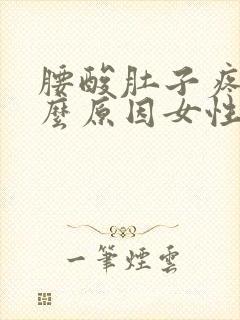 腰酸肚子疼
麼原因女性
一筆煙雲